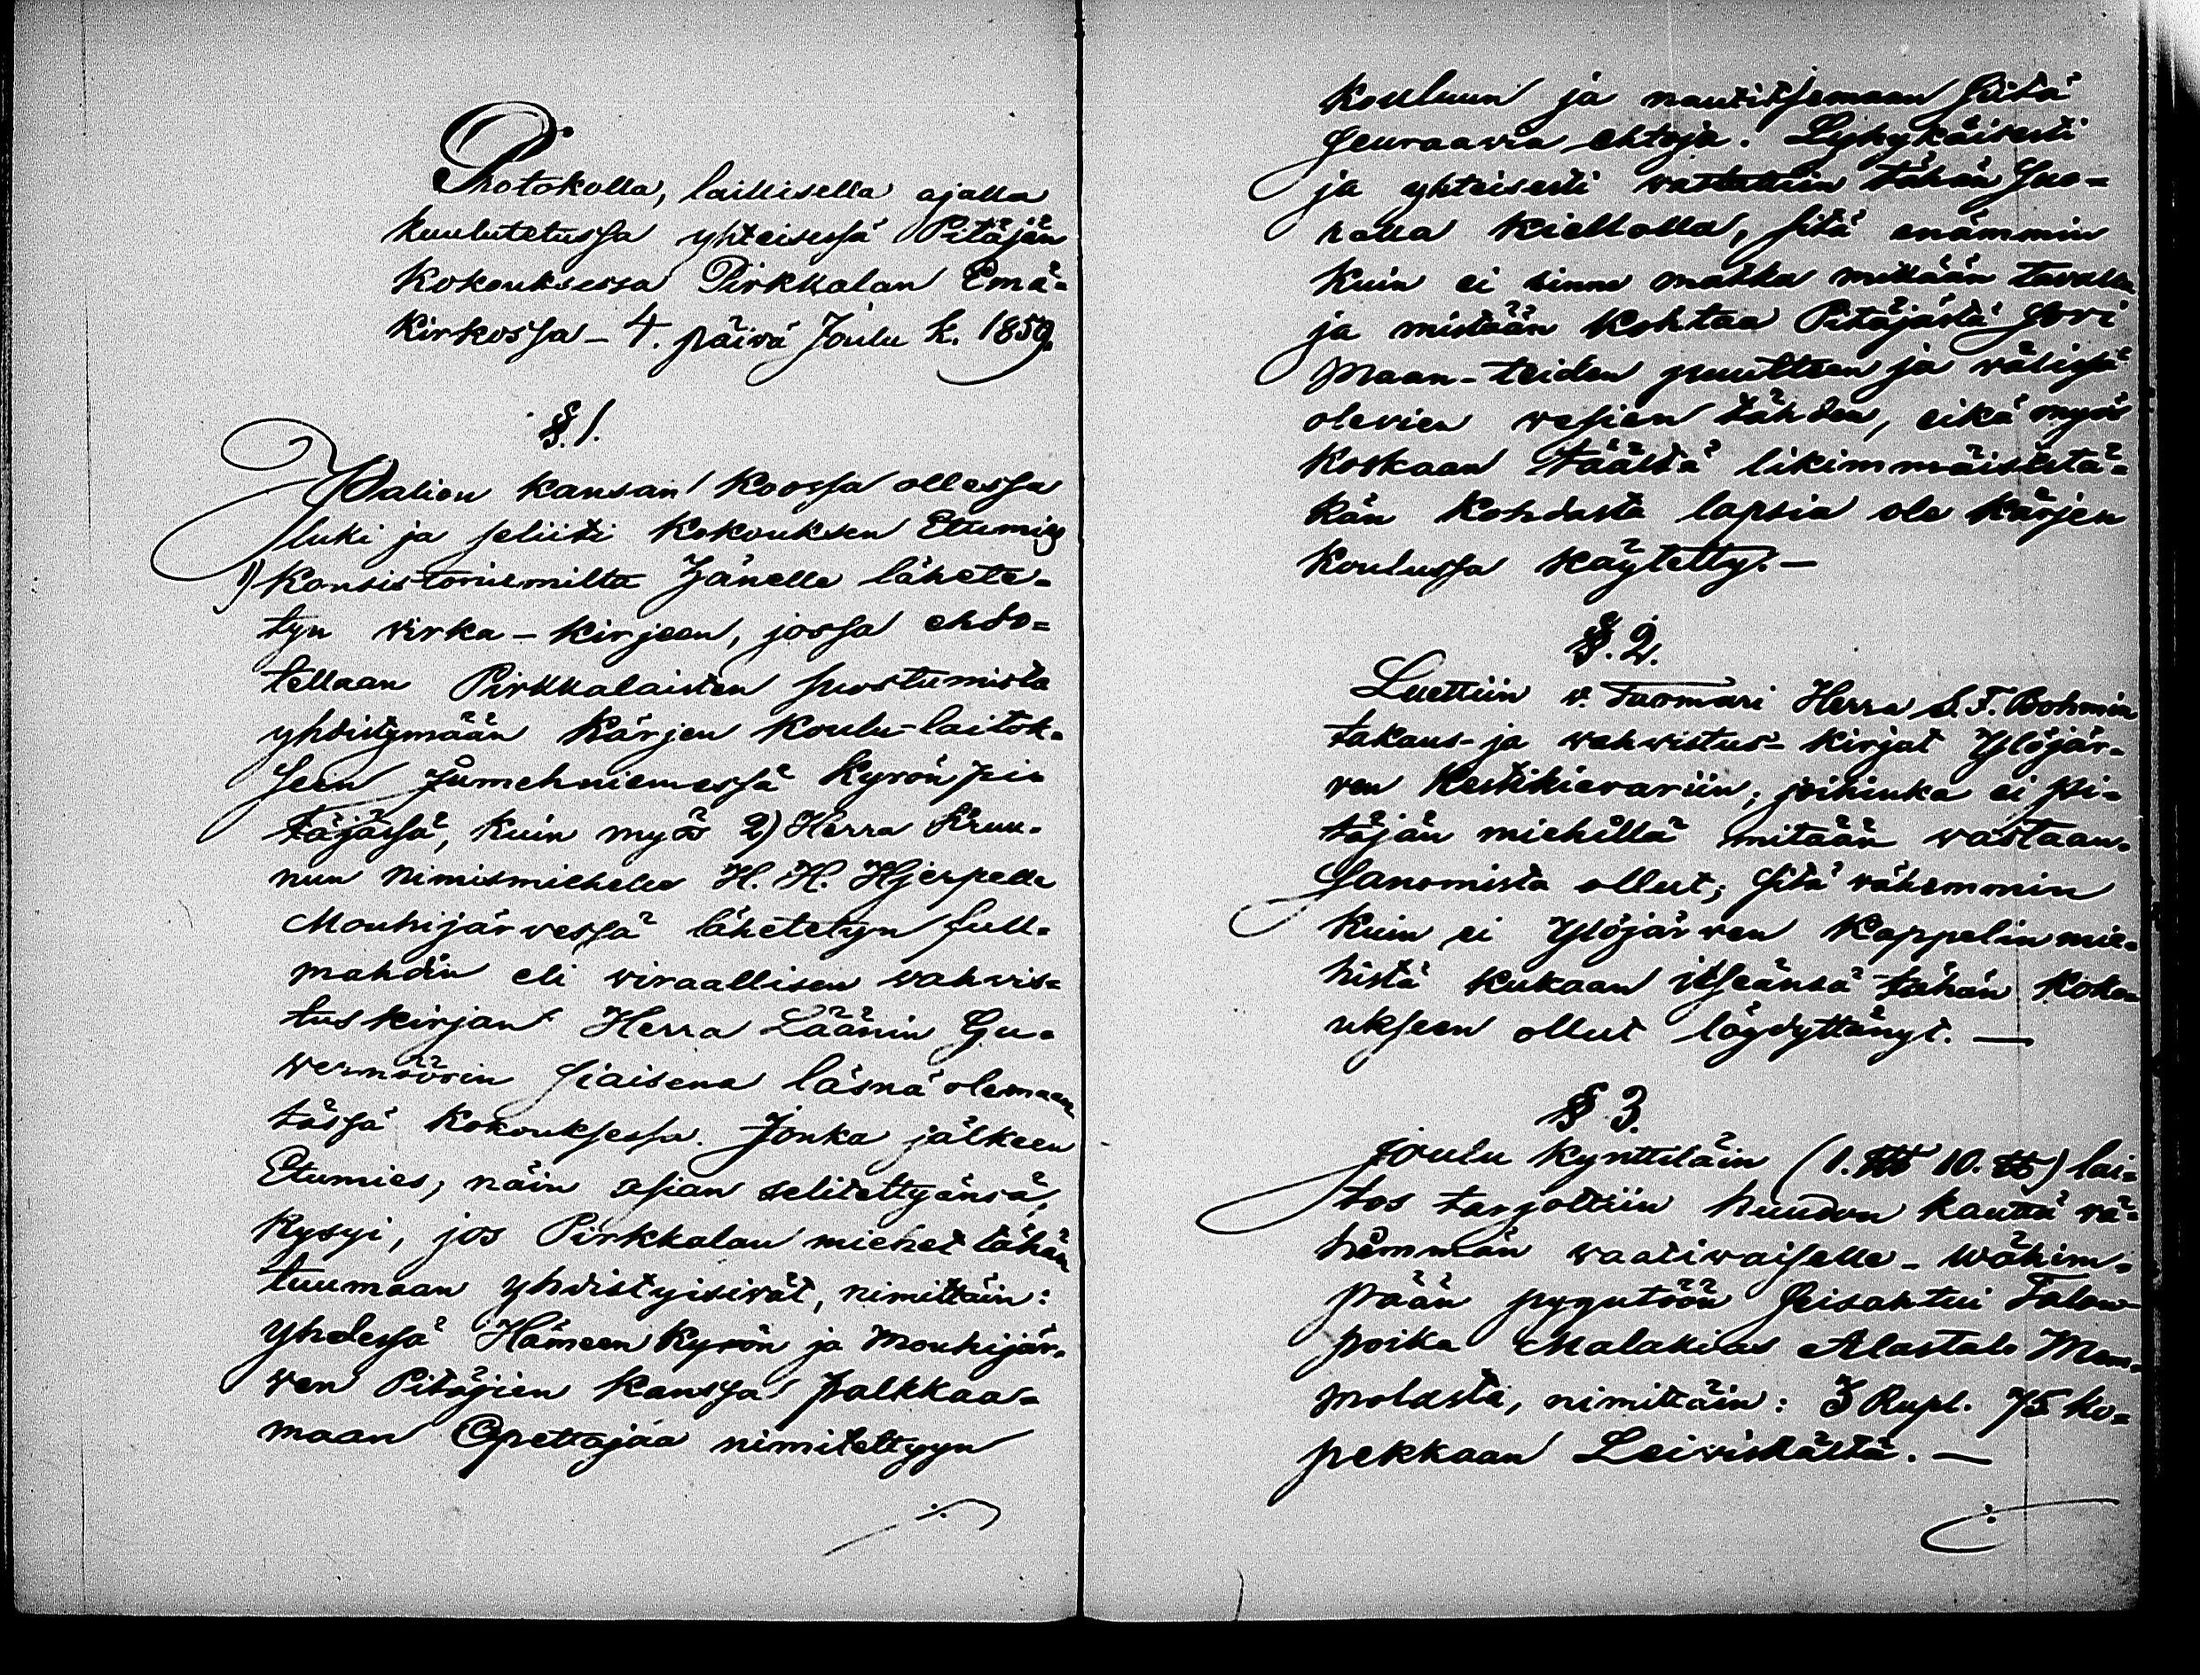 Protokolla, laillisella ajalla
kuulutetussa yhteisessä Pitäjän
Kokouksessa Pirkkalan Emä-
Kirkossa - 4. päivä Joulu k. 1859.
§. 1.
Walion kansan koossa ollessa
luki ja seliiti Kokouksen Etumies
1) Konsistoriumilta Hänelle lähete-
tyn virka-kirjeen, jossa ehdo-
tellaan Pirkkalaisten suostumista
yhdistymään Kärjen Koulu-laitok-
seen Jumehniemessä Kyrön pi-
täjässä, kuin myös 2) Herra Kruu-
nun Nimismiehelle H. H. Hjerpelle
Mouhijärvessä lähetetyn full-
mahdin eli viraallisen vahvis-
tuskirjan Herra Läänin Gu-
wernöörin siaisena läsnä olemaan
tässä Kokouksessa. Jonka jälkeen
Etumies, näin asian selitettyänsä,
Kysyi, jos Pirkkalan miehet tähän
tuumaan yhdistyisivät, nimittäin:
yhdessä Hämeen Kyrön ja Mouhijär-
ven Pitäjien kanssa palkkaa-
maan Opettajaa nimitettyyn
./.
Kouluun ja nautitsemaan siitä
seuraavia ehtoja. Lyhykäisesti
ja yhteisesti vastattiin tähän suo-
ralla kiellolla, sitä enämmin
kuin ei sinne matka millään tavalla
ja mistään kohtaa Pitäjästä sovi
Maan-teiden puutteen ja välissä
olevien vesien tähden, eikä myös
Koskaan täältä likimmäisistä-
kän kohdasta lapsia ole Kärjen
Koulussa käytetty. —
§. 2.
Luettiin v. Tuomari Herra S. F. Bohmin
takaus- ja vahvistus- kirjat Ylöjär-
ven Kestikievariin; joihinka ei pi-
täjän miehillä mitään vastaan-
sanomista ollut; sitä vähemmin
kuin ei Ylöjärven Kappelin mie-
histä kukaan itseänsä tähän Koko-
ukseen ollut löydyttänyt. —
§ 3.
Joulu kynttiläin (1. 10.) lai-
tos tarjottiin huudon kautta vä-
hemmän vaativaiselle - Wähim-
pään pyyntöön seisahtui Talon-
poika Malakias Alastalo Mem-
molasta, nimittäin: 3 Rupl. 75 ko-
pekkaan Leiviskältä. —
./.